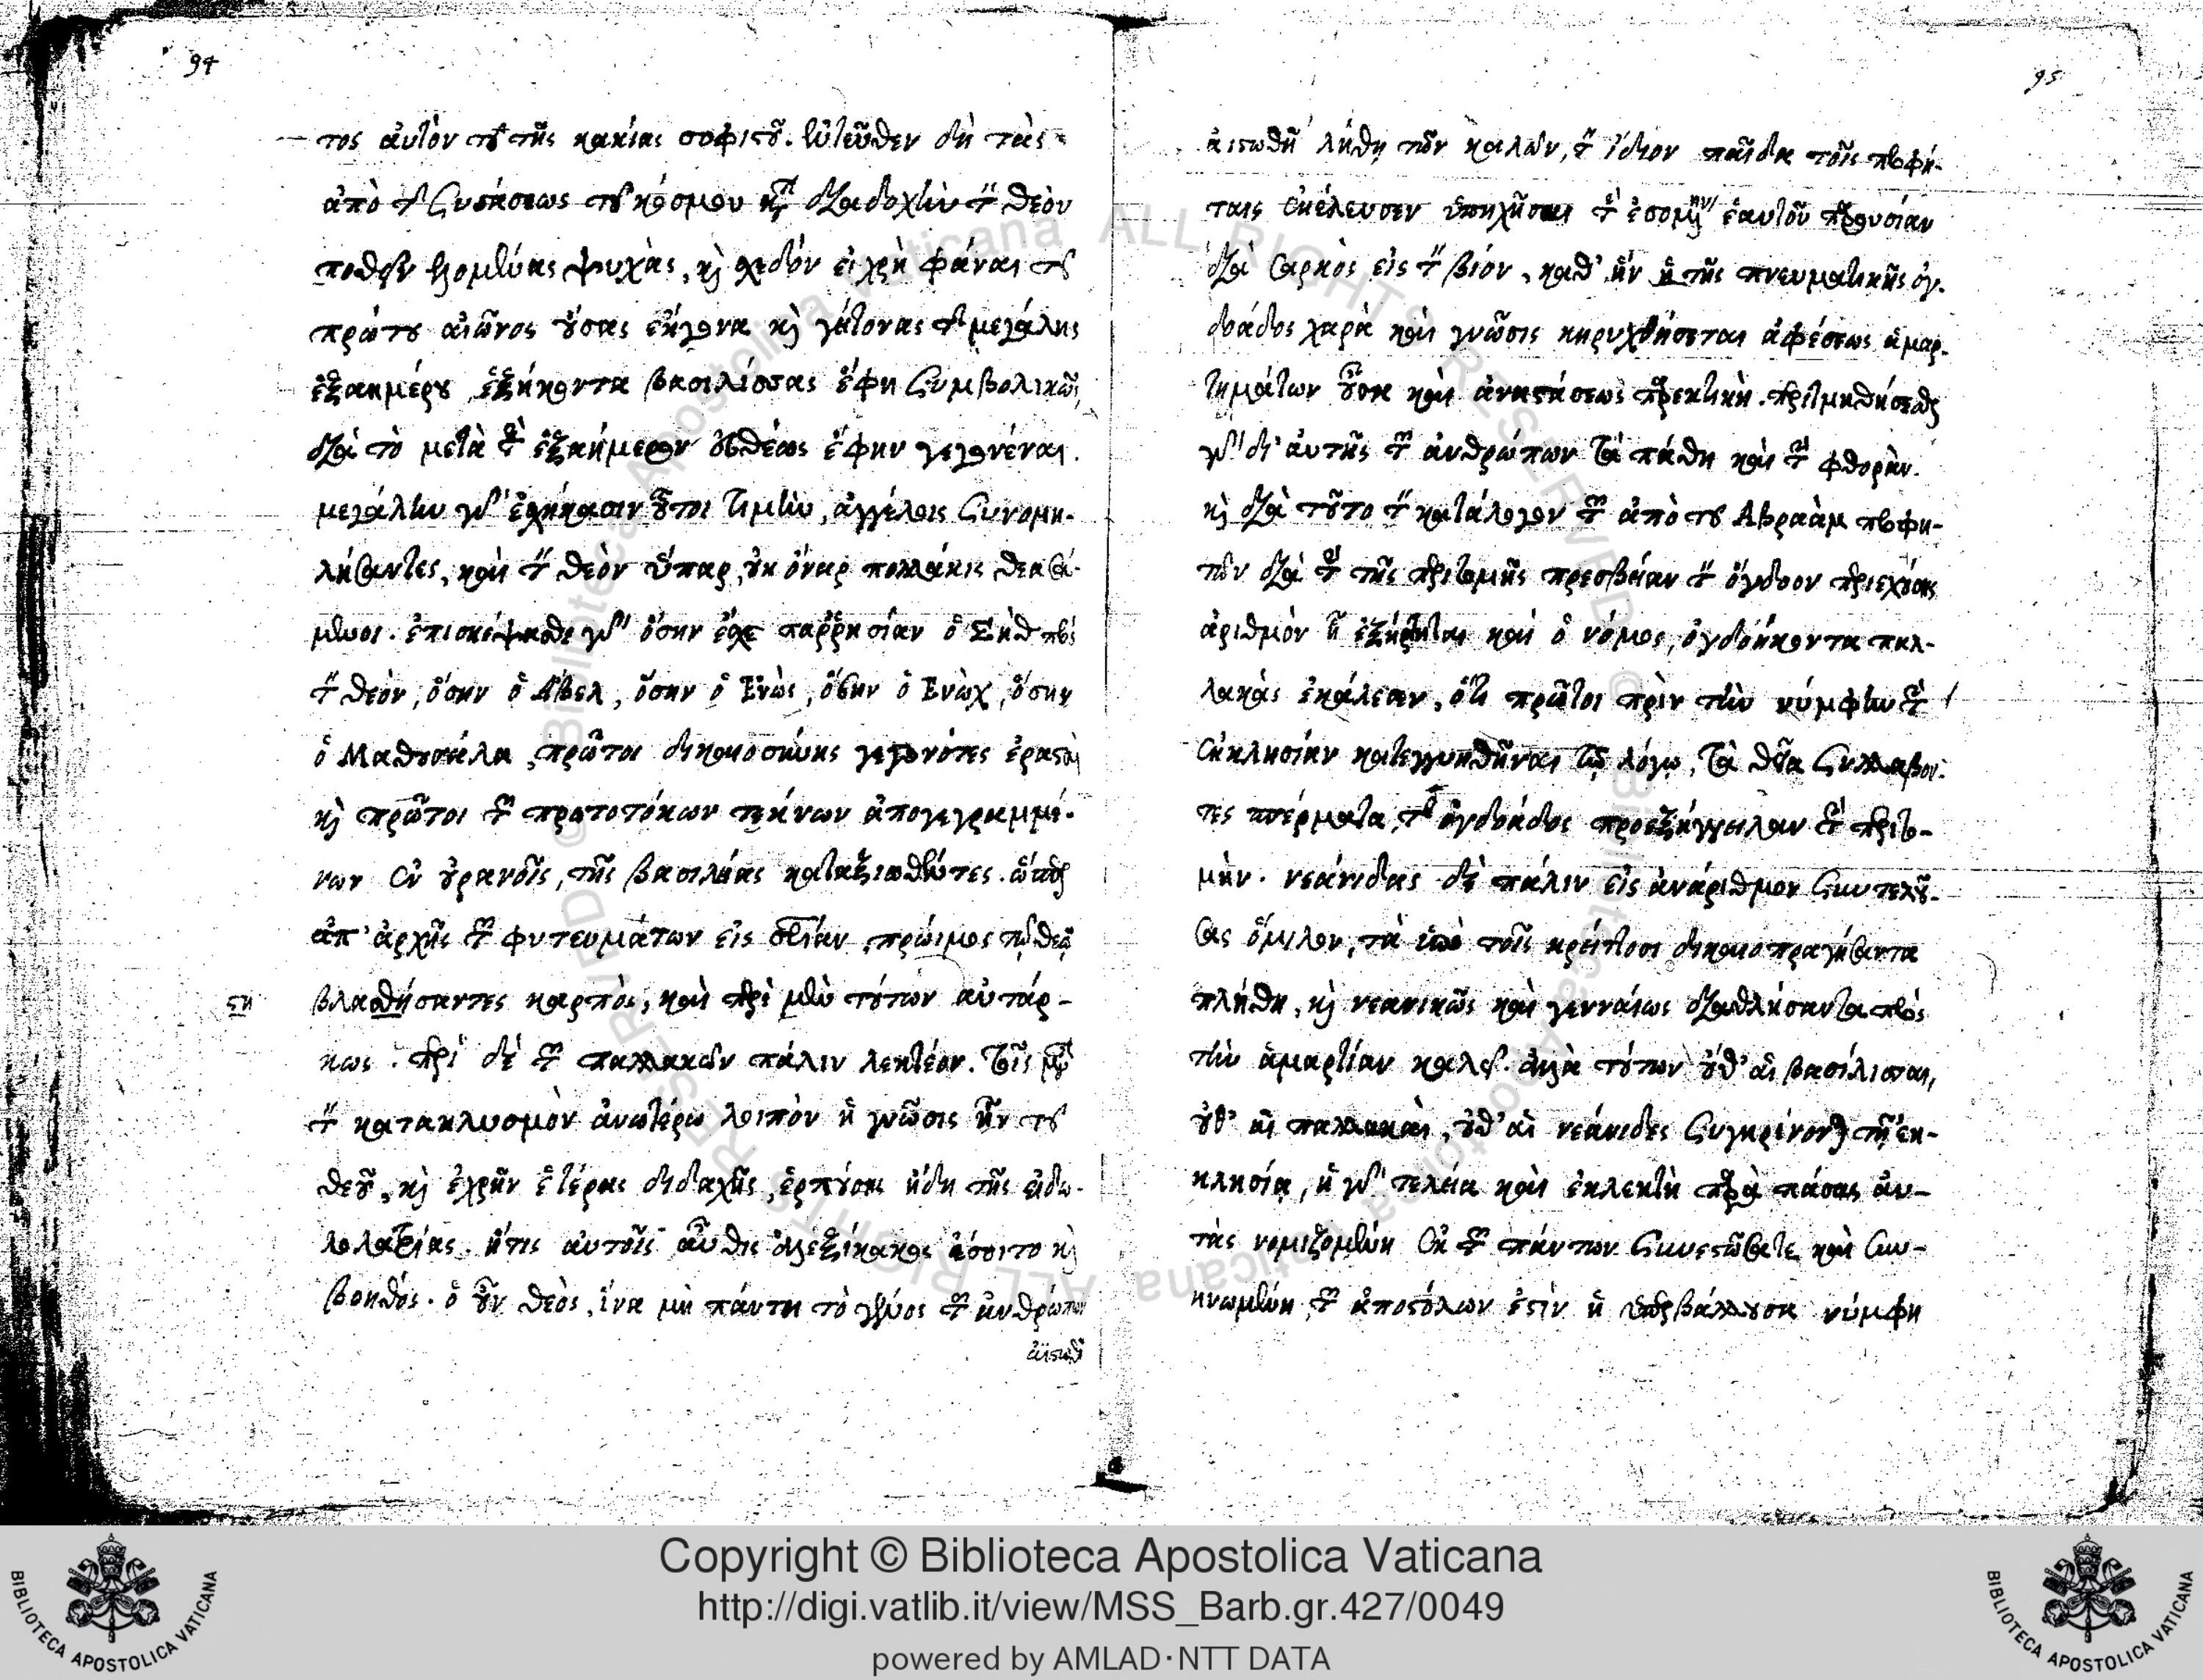 94
τος αὐτὸν τοῦ τῆς κακίας σοφιστοῦ. ἐντεῦθεν δὴ τὰς
ἀπὸ τῆς συστάσεως τοῦ κόσμου κατὰ διαδοχὴν τὸν θεὸν
ποθεῖν γενομένας ψυχὰς, καὶ σχεδὸν εἰ χρὴ φάναι τοῦ
πρώτου αἰῶνος οὔσας ἔκγονα καὶ γείτονας τῆς μεγάλης
ἑξαημέρου, ἑξήκοντα βασιλίσσας ἔφη συμβολικῶς,
διὰ τὸ μετὰ τὴν ἑξαήμερον εὐθέως ἔφην γεγονέναι.
μεγάλην γὰρ ἐσχήκασιν οὗτοι τιμὴν, ἀγγέλοις συνομι-
λήσαντες, καὶ τὸν θεὸν ὕπαρ, οὐκ ὄναρ πολλάκις θεασά-
μενοι. ἐπισκέψασθε γὰρ ὅσην ἔσχε παρρησίαν ὁ Σὴθ πρὸς
τὸν θεόν, ὅσην ὁ Ἄβελ, ὅσην ὁ Ἐνὼς, ὅσην ὁ Ἐνὼχ, ὅσην
ὁ Μαθουσάλα, πρῶτοι δικαιοσύνης γεγονότες ἐρασταὶ
καὶ πρῶτοι τῶν πρωτοτόκων τέκνων ἀπογεγραμμέ-
νων ἐν οὐρανοῖς, τῆς βασιλείας καταξιωθέντες. ὥσπερ
ἀπ' ἀρχῆς τῶν φυτευμάτων εἰς σωτηρίαν πρώιμος τῷ θεῷ
ϛη
βλαστήσαντες καρπὸς, καὶ περὶ μὲν τούτων αὐτάρ-
κως. περὶ δὲ τῶν παλλακῶν πάλιν λεκτέον. τοῖς μετὰ
τὸν κατακλυσμὸν ἀνωτέρω λοιπὸν ἡ γνῶσις ἦν τοῦ
θεοῦ, καὶ ἐχρῆν ἑτέρας διδαχῆς, ἑρπούσης ἤδη τῆς εἰδω-
λολατρίας. ἥτις αὐτοῖς αὖθις ἀλεξίκακος ἔσοιτο καὶ
βοηθός. ὁ οὖν θεὸς, ἵνα μὴ πάντη τὸ γένος τῶν ἀνθρώπων
ἀϊστωθῇ
95
ἀϊστωθῇ λήθῃ τῶν καλῶν, τὸν ἴδιον παῖδα τοῖς προφή-
ταις ἐκέλευσεν ὑπηχῆσαι τὴν ἐσομένην ἑαυτοῦ παρουσίαν
διὰ σαρκὸς εἰς τὸν βίον, καθ' ἣν ἡ τῆς πνευματικῆς ὀγ-
δοάδος χαρὰ καὶ γνῶσις κηρυχθήσεται ἀφέσεως ἁμαρ-
τημάτων οὖσα καὶ ἀναστάσεως παρεκτική. περιτμηθήσεται
γὰρ δι' αὐτῆς τῶν ἀνθρώπων τὰ πάθη καὶ τὴν φθοράν.
καὶ διὰ τοῦτο τὸν κατάλογον τῶν ἀπὸ τοῦ Αβραὰμ προφη-
τῶν διὰ τὴν τῆς περιτομῆς πρεσβείαν τὸν ὄγδοον περιεχούσης
ἀριθμὸν ἧς ἐξήρτηται καὶ ὁ νόμος, ὀγδοήκοντα παλ-
λακὰς ἐκάλεσεν, ὅτι πρῶτοι πρὶν τὴν νύμφην τὴν
ἐκκλησίαν κατεγγυηθῆναι τῷ λόγῳ, τὰ θεῖα συλλαβόν-
τες σπέρματα, τῆς ὀγδοάδος προεξήγγειλαν τὴν περιτο-
μήν. νεάνιδας δὲ πάλιν εἰς ἀνάριθμον συντελού-
σας ὅμιλον, τὰ ὑπὸ τοῖς κρείττοσι δικαιοπραγήσαντα
πλήθη, καὶ νεανικῶς καὶ γενναίως διαθλήσαντα πρὸς
τὴν ἁμαρτίαν καλεῖ. ἀλλὰ τούτων οὔθ' αἱ βασίλισσαι,
οὔθ' αἱ παλλακαὶ, οὔθ' αἱ νεάνιδες συγκρίνονται τῇ ἐκ-
κλησίᾳ, ἡ γὰρ τελεία καὶ ἐκλεκτὴ παρὰ πάσας αὐ-
τὰς νομιζομένη ἐκ τῶν πάντων συνεστῶσά τε καὶ συν-
ηνωμένη τῶν ἀποστόλων ἐστὶν ἡ ὑπερβάλλουσα νύμφη
Copyright © Biblioteca Apostolica Vaticana
http://digi.vatlib.it/view/MSS_Barb.gr.427/0049
powered by AMLAD·NTT DATA
BIBLIOTECA APOSTOLICA VATICANA
BIBLIOTECA APOSTOLICA VATICANA